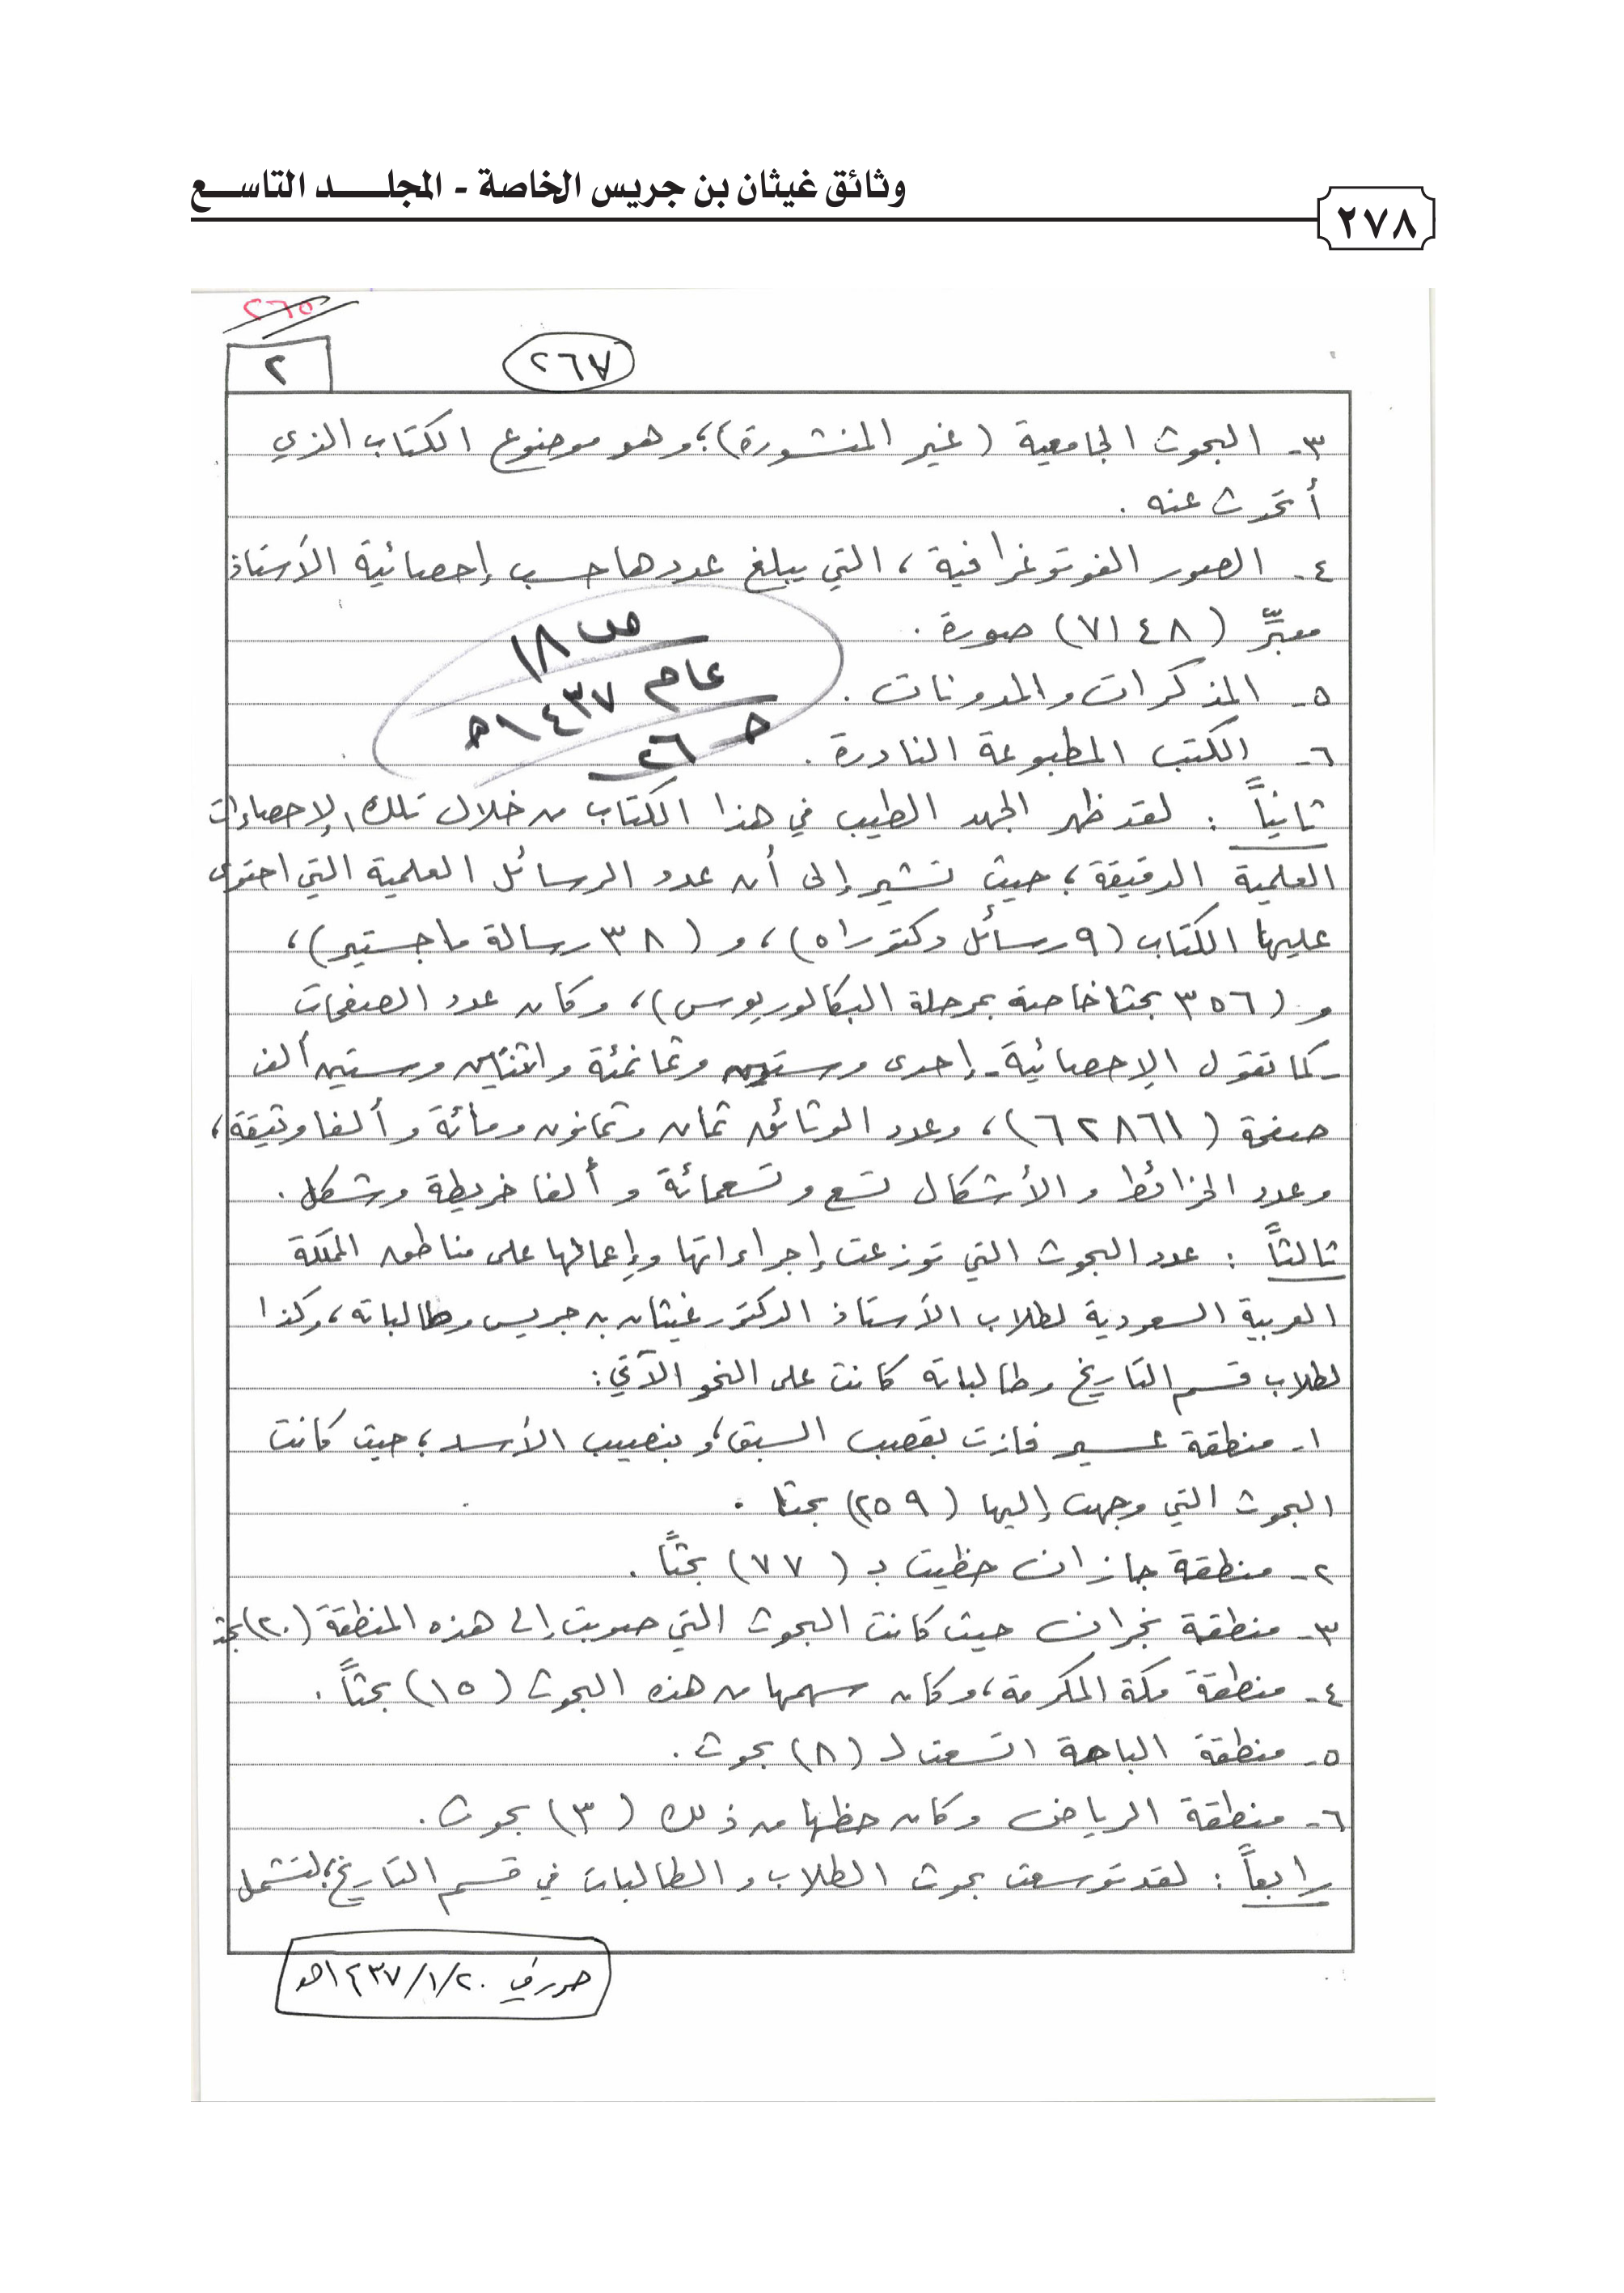 وثائق غيثان بن جريس الخاصة - المجلـــد التاســـع
٢٧٨
٢٦٥
٢
٢٦٧
٣- البحوث الجامعية (غير المنشورة)؛ وهو موضوع الكتاب الذي
أتحدث عنه .
٤- الصور الفوتوغرافية ، التي يبلغ عددها حسب إحصائية الأستاذ
معبّر (٧١٤٨) صورة .
٥- المذكرات والمدونات .
٦- الكتب المطبوعة النادرة .
ص ١٨
عام ١٤٣٧هـ
حـ ٢٦
ثانياً : لقد ظهر الجهد الطيب في هذا الكتاب من خلال تلك الإحصاءات
العلمية الدقيقة ؛ حيث تشير إلى أن عدد الرسائل العلمية التي احتوى
عليها الكتاب (٩ رسائل دكتوراه) ، و (٣٨ رسالة ماجستير) ،
و (٣٥٦ بحثا خاصة بمرحلة البكالوريوس) ، وكان عدد الصفحات
- كما تقول الإحصائية - إحدى وستين وثمانمئة واثنتين وستين ألف
صفحة (٦٢٨٦١) ، وعدد الوثائق ثمان وثمانون ومائة وألفا وثيقة ،
وعدد الخرائط والأشكال تسع وتسعمائة وألفا خريطة وشكل .
ثالثاً : عدد البحوث التي توزعت إجراءاتها وإعمالها على مناطق المملكة
العربية السعودية لطلاب الأستاذ الدكتور غيثان بن جريس وطالباته ، وكذا
لطلاب قسم التاريخ وطالباته كانت على النحو الآتي :
١- منطقة عسير فازت بقصب السبق ، وبنصيب الأسد ؛ حيث كانت
البحوث التي وجهت إليها (٢٥٩) بحثا .
٢- منطقة جازان حظيت بـ (٧٧) بحثاً .
٣- منطقة نجران حيث كانت البحوث التي صوبت إلى هذه المنطقة (٢٠) بحثا
٤- منطقة مكة المكرمة ، وكان سهمها من هذه البحوث (١٥) بحثاً .
٥- منطقة الباحة اتسعت لـ (٨) بحوث .
٦- منطقة الرياض وكان حظها من ذلك (٣) بحوث .
رابعاً : لقد توسعت بحوث الطلاب والطالبات في قسم التاريخ ؛ لتشمل
صور في ١٤٣٧/١/٢٠هـ